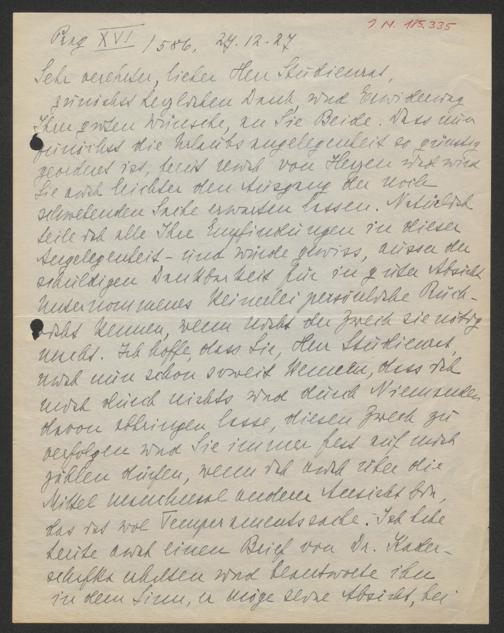 Prag XVI /586, 27.12.27
J.N. 115.335
Sehr verehrter, lieber Herr Studienrat,
zunächst herzlichen Dank und Erwiderung
Ihrer guten Wünsche, an Sie Beide. Dass nun
zunächst die Urlaubsangelegenheit so günstig
geordnet ist, freut mich von Herzen und wird
Sie auch leichter den Ausgang der noch
schwebenden Sache erwarten lassen. Natürlich
teile ich alle Ihre Empfindungen in dieser
Angelegenheit - und würde gewiss, ausser der
schuldigen Dankbarkeit für in guter Absicht
Unternommenes keinerlei persönliche Rück-
sicht kennen, wenn nicht der Zweck sie nötig
macht. Ich hoffe, dass Sie, Herr Studienrat,
mich nun schon soweit kennen, dass ich
mich durch nichts und durch Niemanden
davon abbringen lasse, diesen Zweck zu
verfolgen und Sie immer fest auf mich
zählen dürfen, wenn ich auch über die
Mittel manchmal anderer Ansicht bin,
das ist wol Temperamentssache. Ich habe
heute auch einen Brief von Dr.
erhalten und beantworte ihn
in dem Sinn, er möge seine Absicht, bei